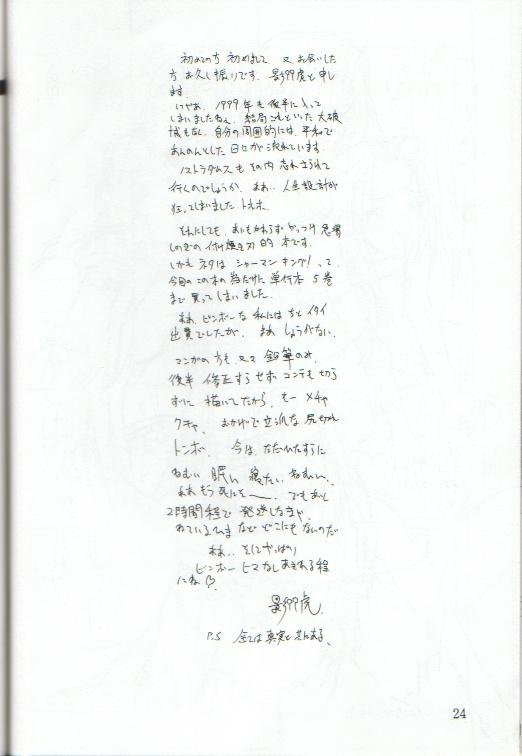 初めての方 初めまして 又 お会いした
方 お久し振りです。影郷虎と申し
ます。
いやぁ、1999年も後半に入って
しまいましたねぇ。結局これといった大破
もなく、自分の周囲的には、平和で
あんのんとした日々が流れています。
ノストラダムスもその内忘れ去られて
行くのでしょうか。まぁ、人生設計が
狂ってしまいました
それにしても、あいもかわらず やっつけ
しのぎの 付け焼き刃的 本です。
しかも ネタは シャーマンキング!って、
今回のこの本の為だけに 単行本 5巻
まで 買ってしまいました。
まぁ、ビンボーな 私には ちと イタイ
出費でしたが、まぁ しょうがない。
マンガの方も、又々 鉛筆のみ、
後半 修正すら せず、コンテも切ら
ずに 描いてたから、もー メチャ
クチャ。おかげで 立派な 尻切れ
トンボ。今は、ただひたすらに
ねむい 眠い 寝たい、ねむい、
あぁ もう 死にそー。でもあと
2時間程で 発送しなきゃ、
ねているひま など どこにも ないのだ
まぁ、、そしてやっぱり
ビンボー ヒマなし あきれる程
にね
影郷虎
P.S 全ては 真実と共にある、
24